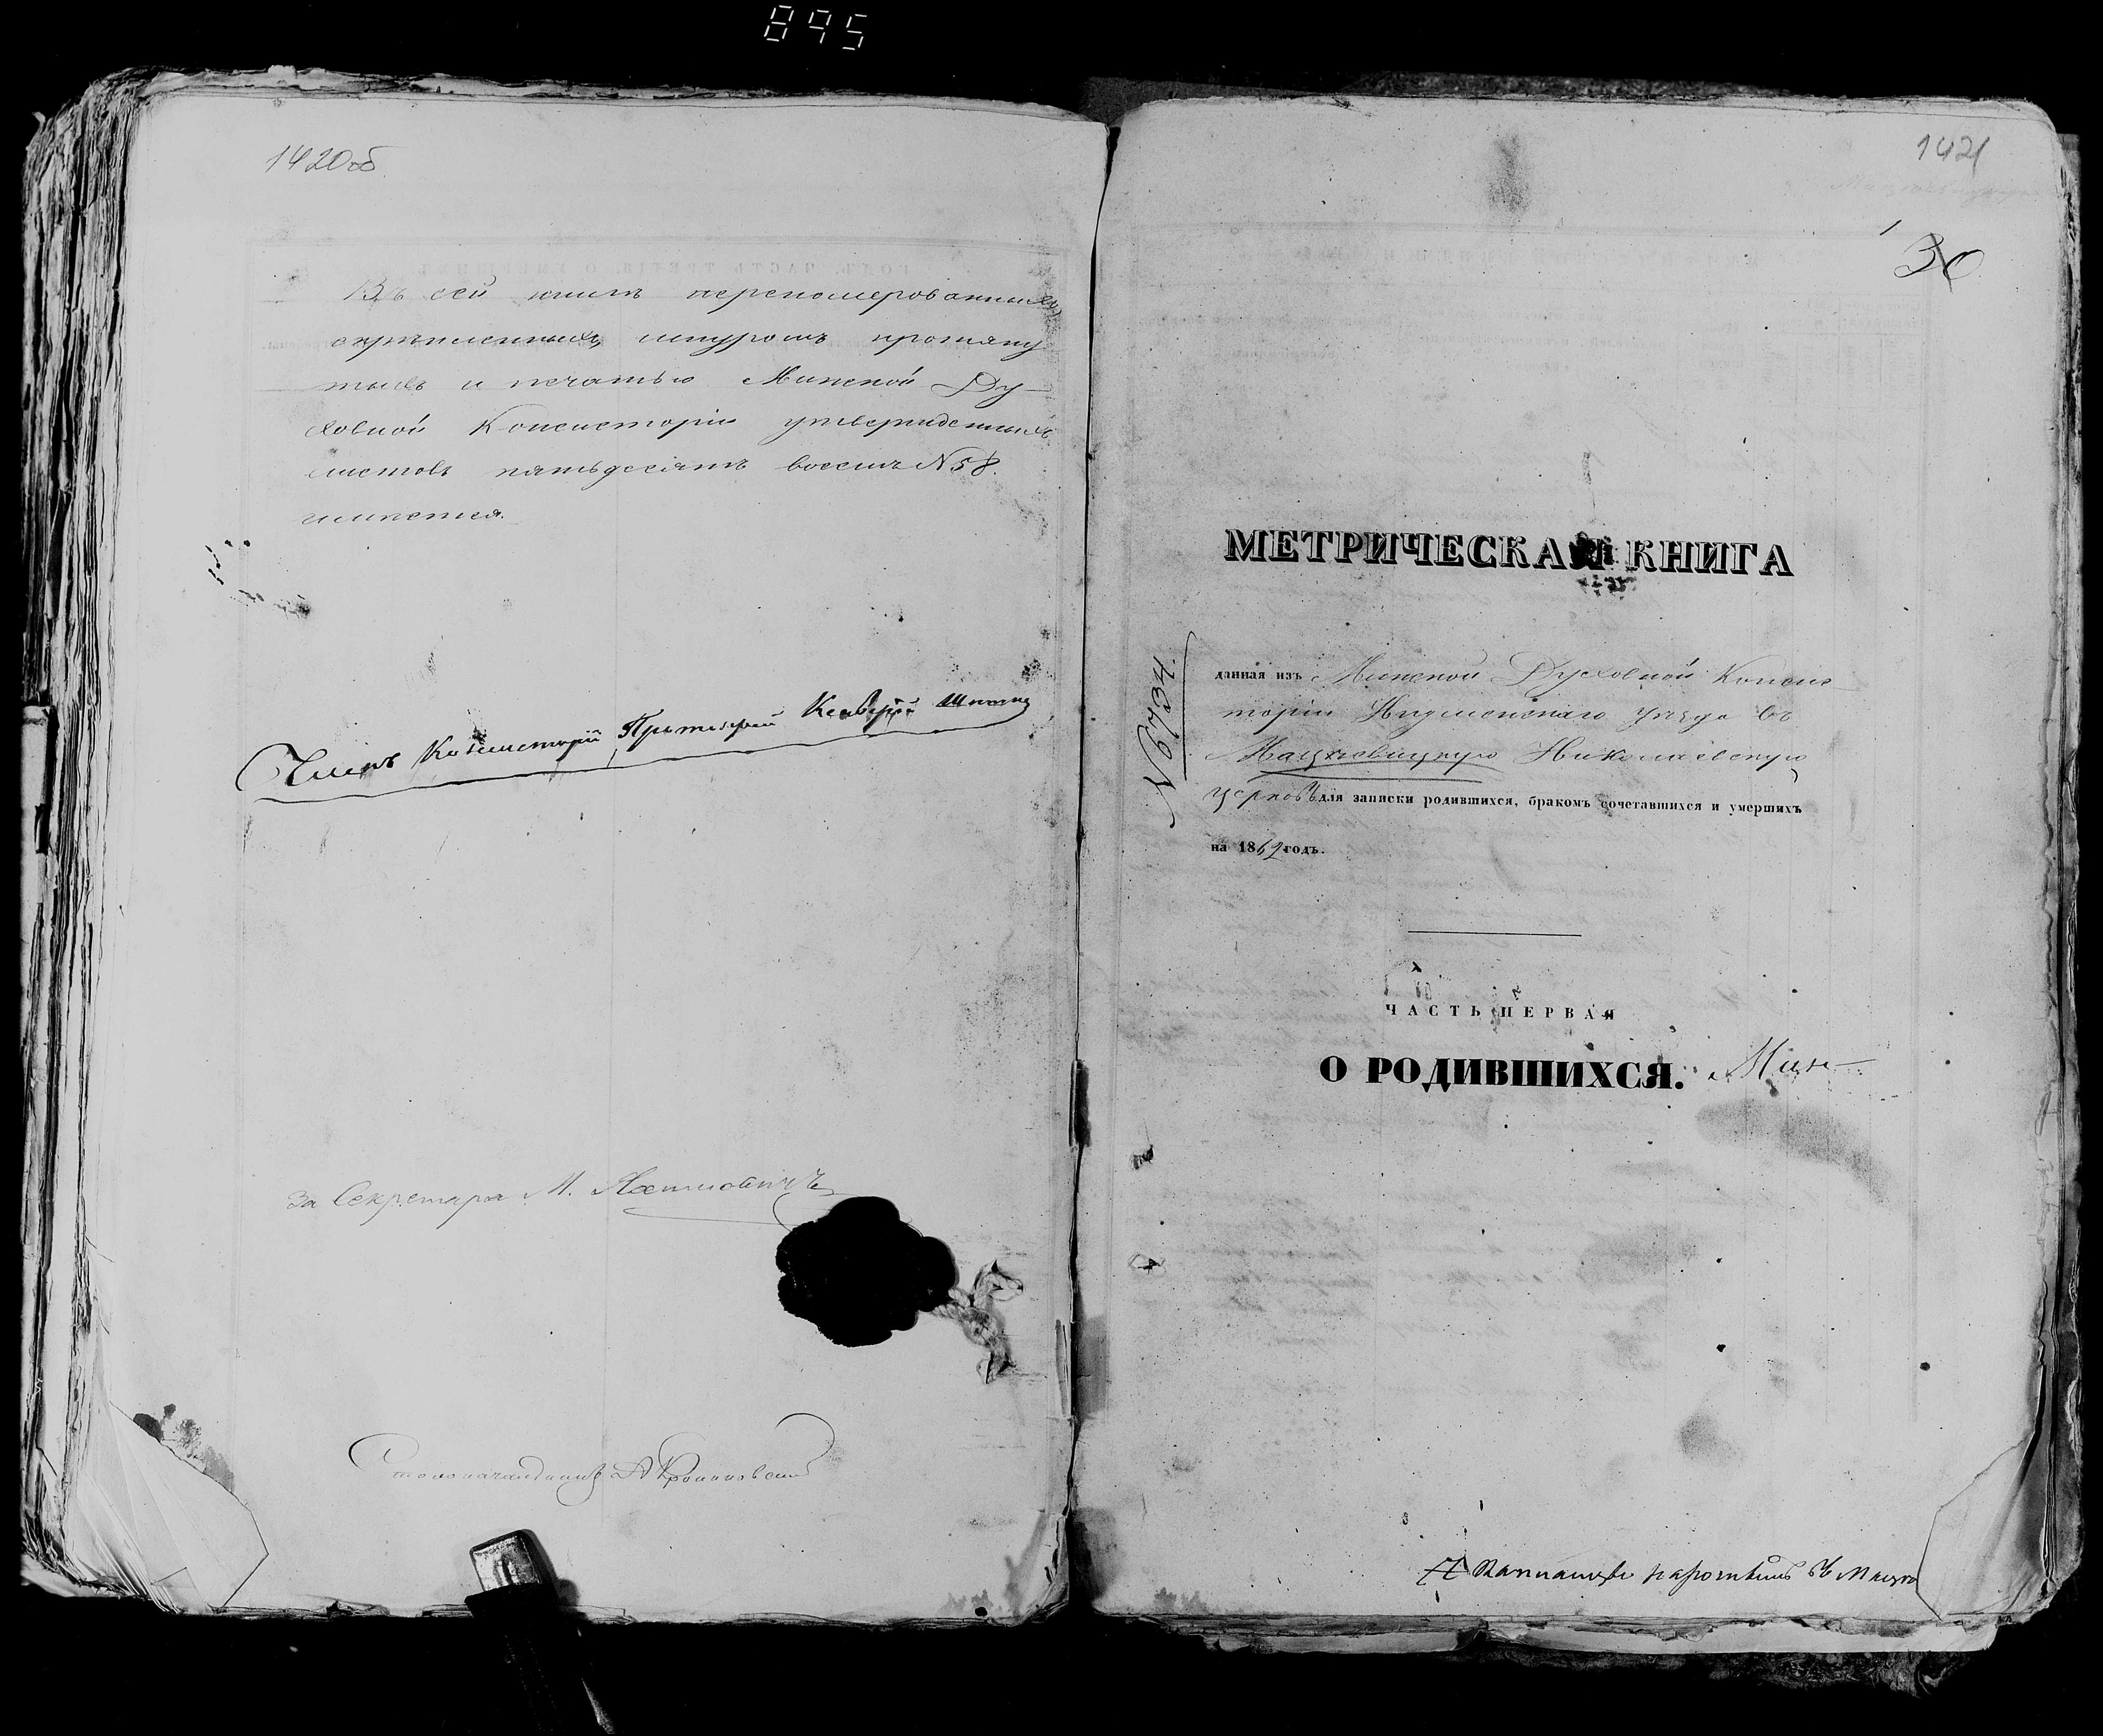 895
1420об
Въ сей книгѣ перепомерованныхъ
скрѣпленныхъ, шнуромъ протяну
тыхъ и печатью Минской Ду-
ховной Консисторіи утвержденныхъ
листовъ пятьдесятъ восемь № 58.
числится.
Членъ Консисторіи Протоіерей
За Секретаря М.
Столоначальникъ
1421
30
МЕТРИЧЕСКАЯ КНИГА
№ 6734.
данная изъ Минской Духовной Консис-
торіи Игуменскаго уѣзда въ
Мацѣевицкую Николаевскую
церковь для записки родившихся, бракомъ сочетавшихся и умершихъ
на 1862 годъ.
ЧАСТЬ ПЕРВАЯ
О РОДИВШИХСЯ. Мин-